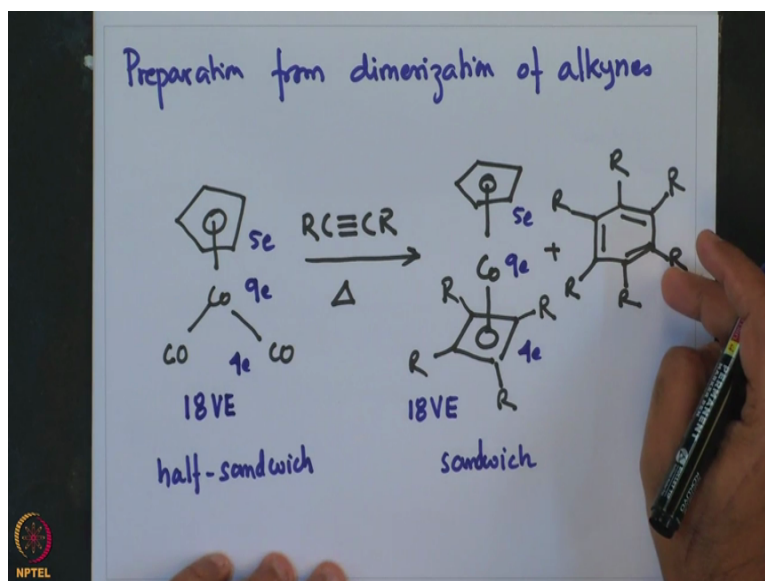 Preparation from dimerization of alkynes
5e
RC≡CR
Δ
Co 9e
CO 4e CO
18VE
half-sandwich
5e
Co 9e
R R
R R
4e
18VE
sandwich
+
R
R R
R R
R
PERMANENT
NPTEL